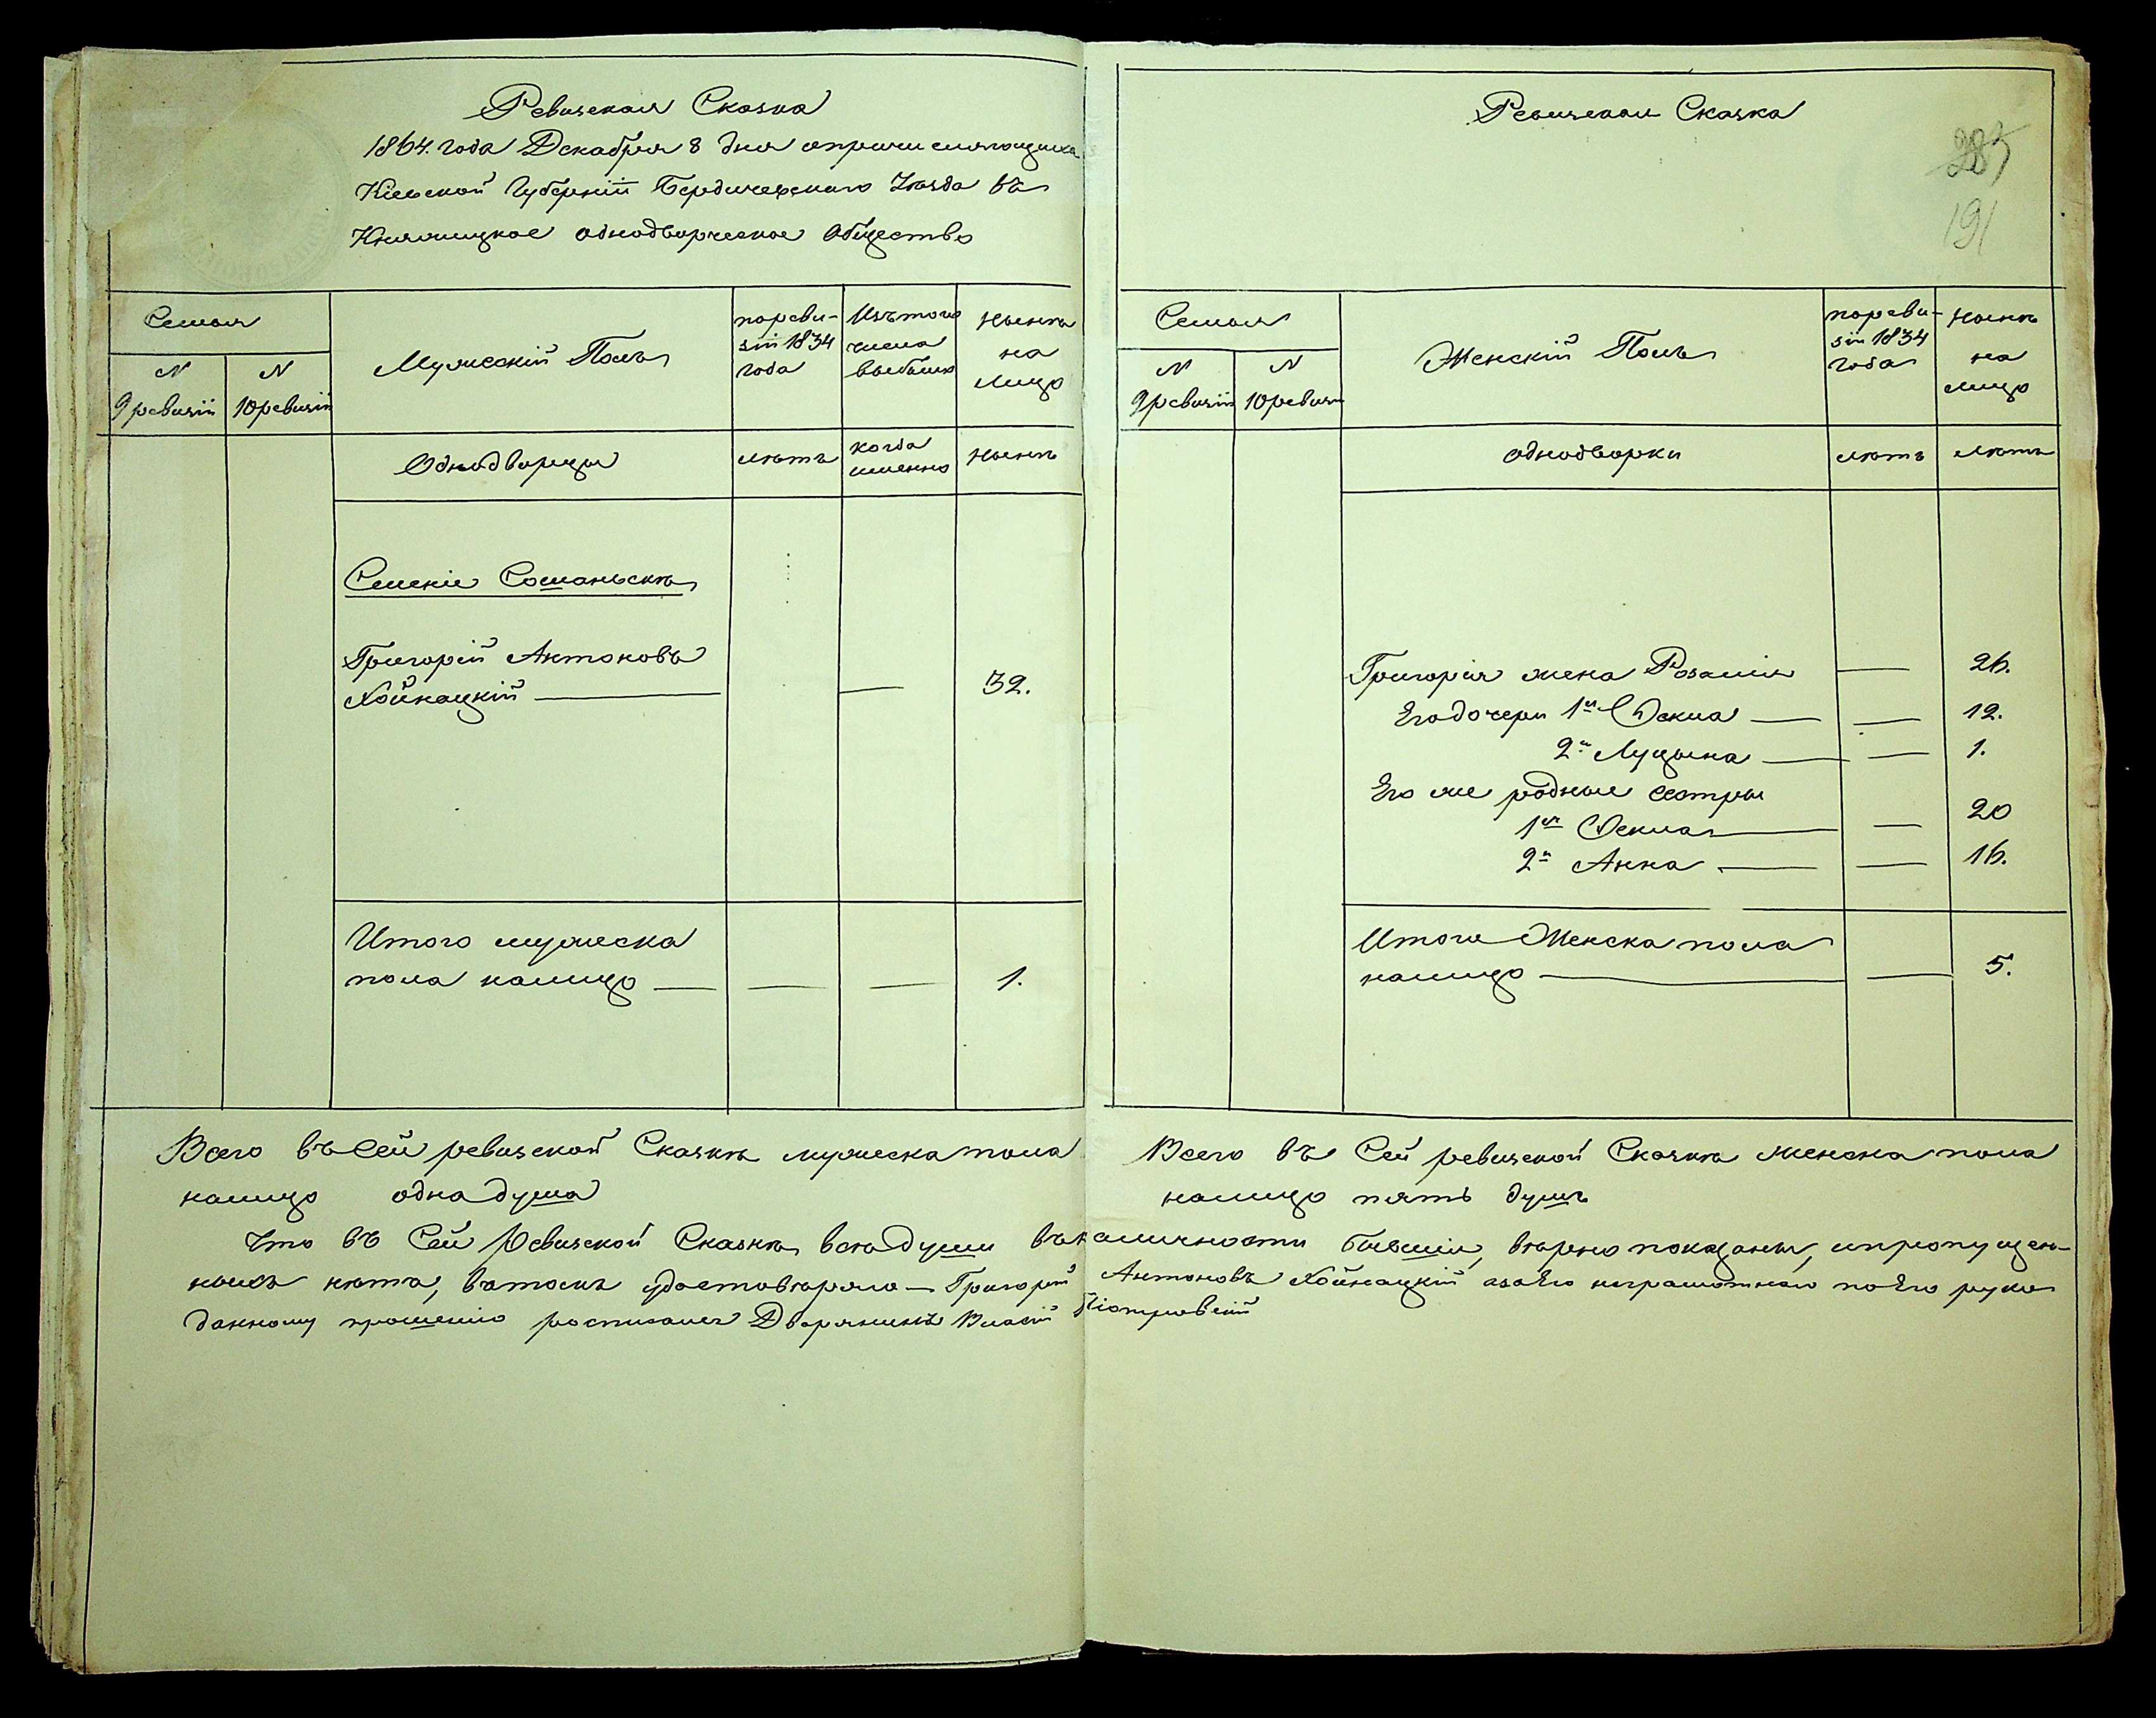 Ревизская Сказка
1864. года Декабря 8 дня опричисляющихся
Кіевской Губерніи Бердичевскаго Уѣзда въ
Княжицкое однодворческое Общество
Семья
N
9 ревизіи
N
10 ревизіи
Мужескій Полъ
поревизіи 1834 года
Изътого числа выбыло
Нынѣ на лицо
Однодворцы
лѣтъ
когда именно
Нынѣ
Григорій Антоновъ
Хойнацкій — — 32.
Итого мужеска
пола налицо — — — 1.
Всего въ сей ревизской Сказкѣ мужеска пола
налицо одна душа
Ревизская Сказка
285
191
Семья
N
9 ревизіи
N
10 ревизіи
Женскій Полъ
поревизіи 1834 года
Нынѣ на лицо
однодворки
лѣтъ
лѣтъ
Григорія жена Розалія — 26.
Его дочери 1я Текла — — 12.
2я Луцына — — 1.
Его же родные сестры
1я Текла — — 20
2я Анна — — 16.
Итого Женска пола
налицо — — 5.
Всего въ Сей ревизской Сказкѣ женска пола
налицо пять душъ
Что въ Сей Ревизской Сказкѣ всѣ души въ наличности бывшіи, вѣрно показаны, ипропущен-
ныхъ нѣтъ, вътомъ удостовѣряю — Григорій Антоновъ Хойнацкій азаЕго неграмотнаго поЕго руко
данному прошенію росписался Дворянинъ Піотровскій